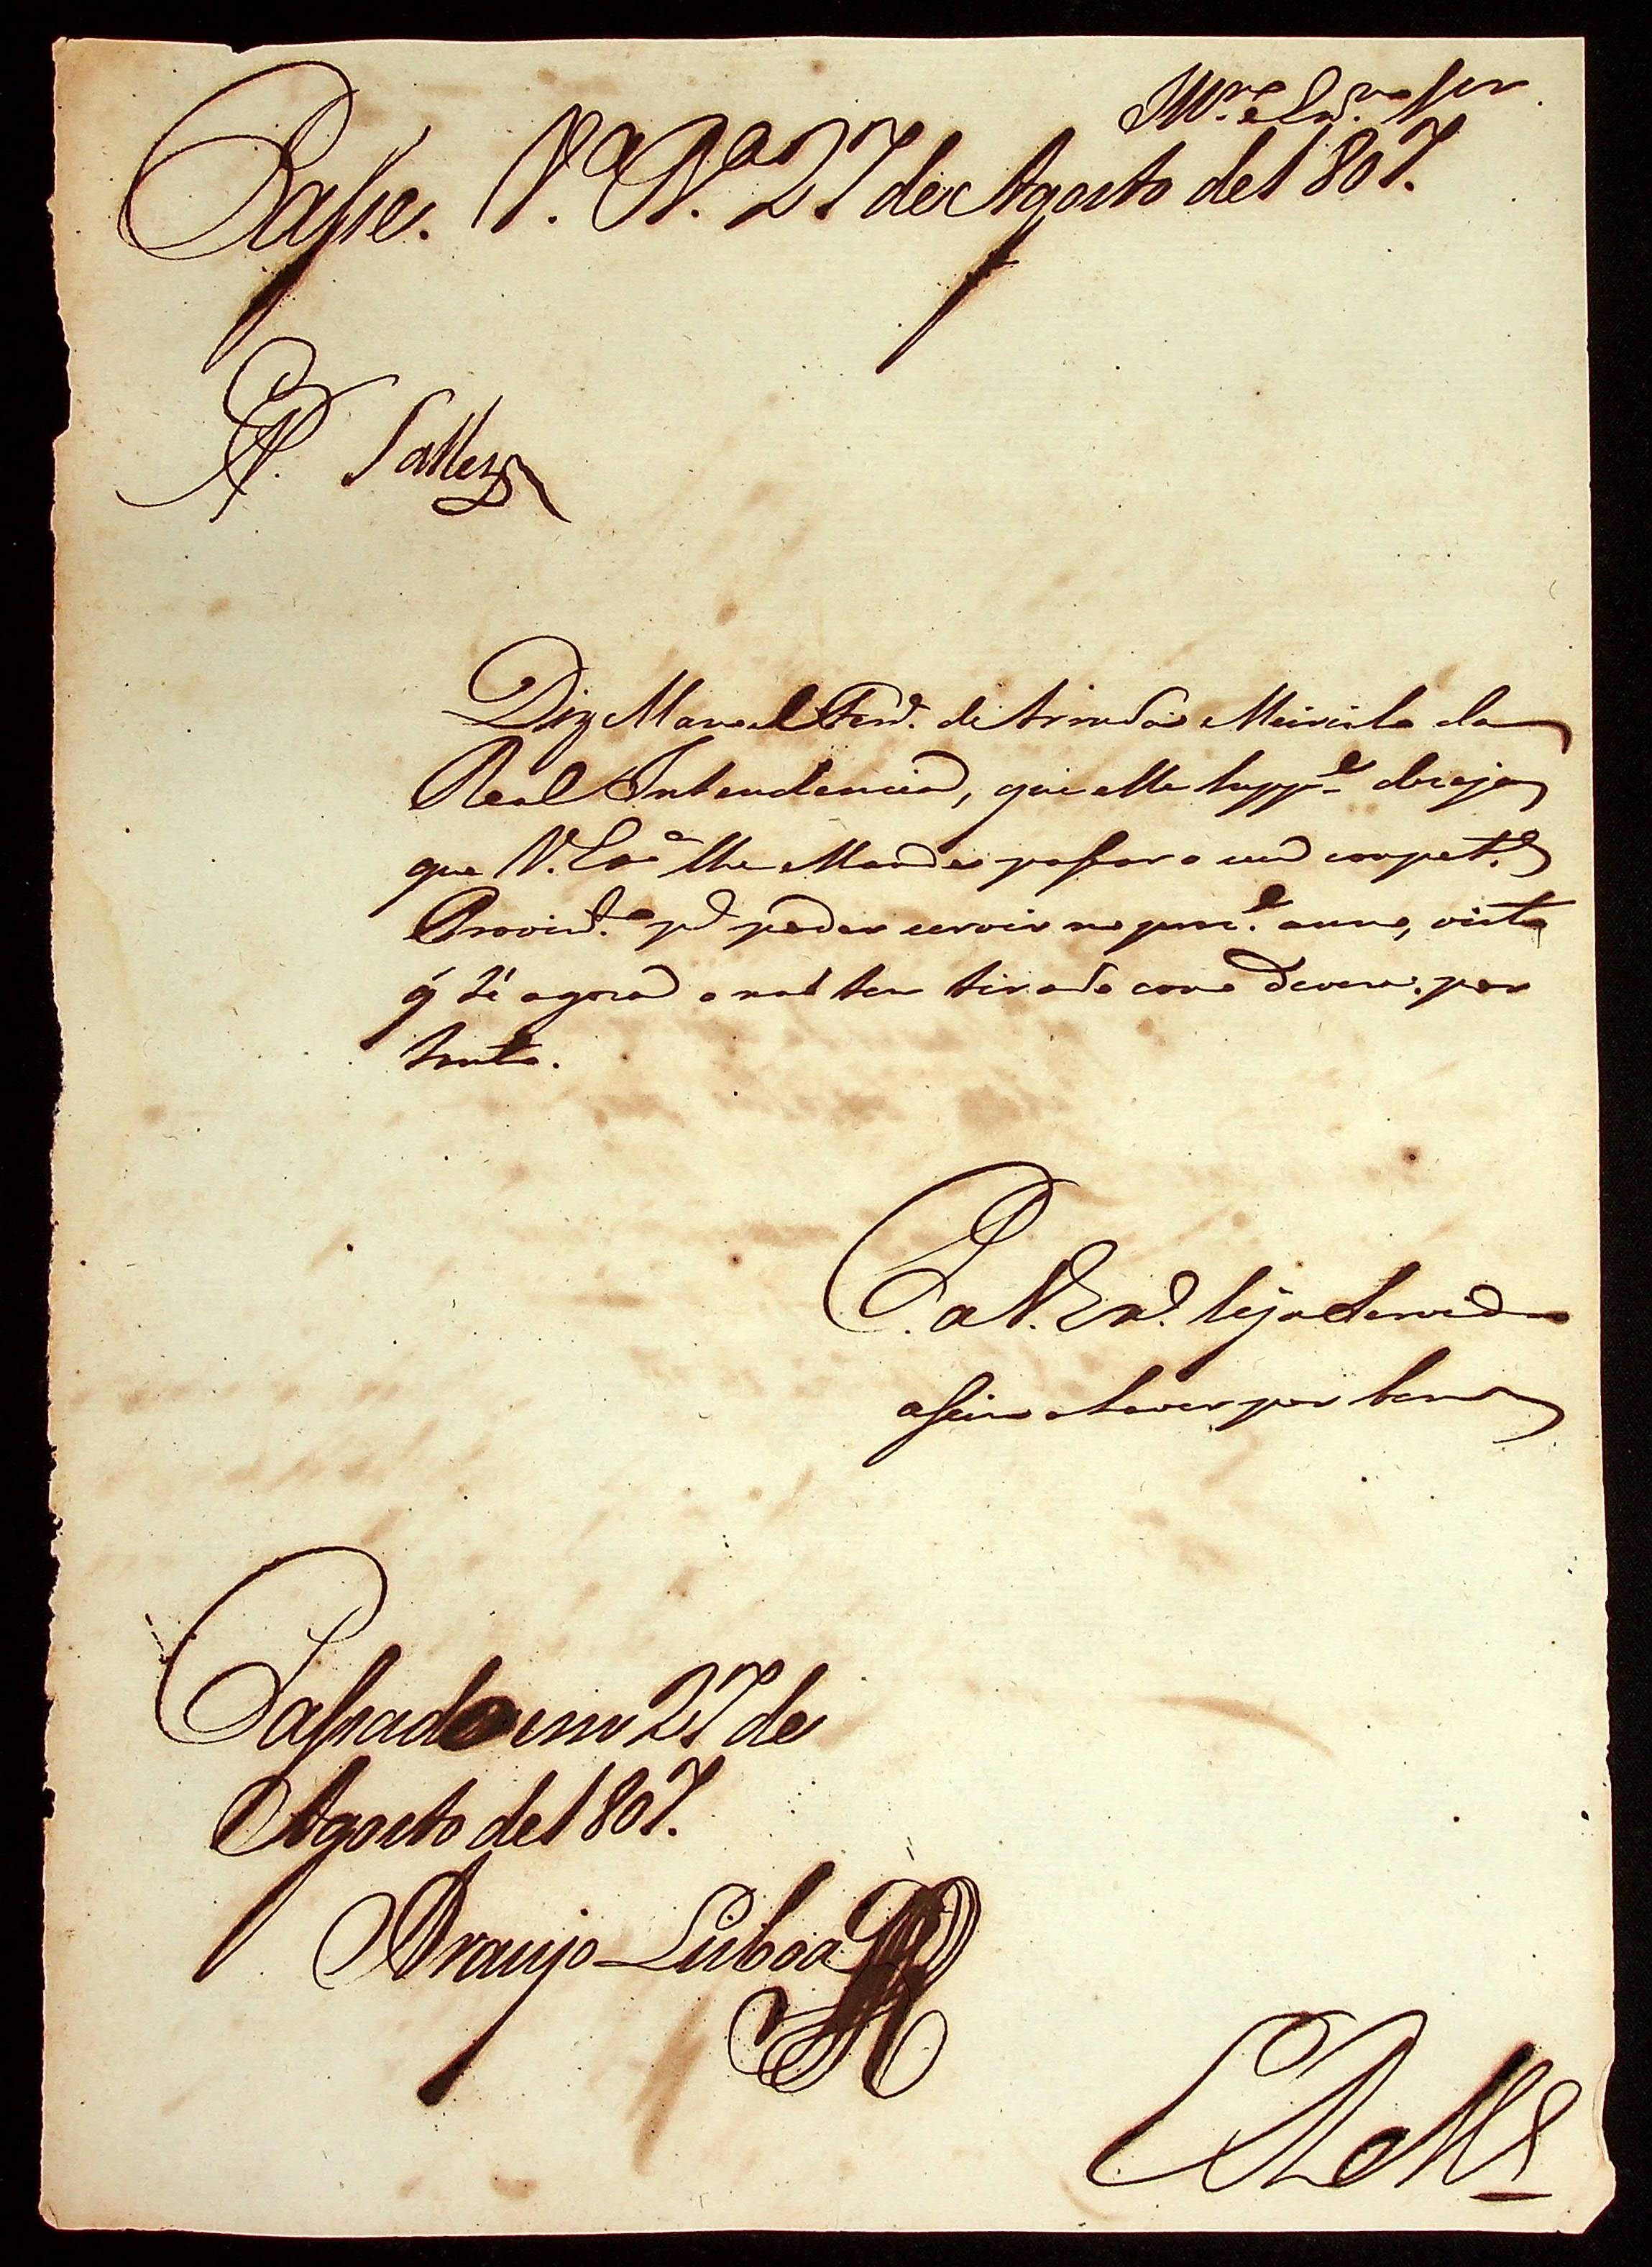 Ill.mo e Ex.mo Snr
Passe. V.a R.a 27 de Agosto de 1807.
Diz Manoel Ferr.a de Arruda Meirinho da
Real Intendencia, que elle supp.e deseja
que V. Ex.a lhe Mande passar o seu compet.e
Provim.to p.a poder servir no prez.e anno, visto
q̃ té agora o não tem tirado como devera. por
tanto.
P. a V. Ex.a seja servido
assim o haver por bem
Passado em 27 de
Agosto de 1807.
Araujo Lisboa
E R M.ce